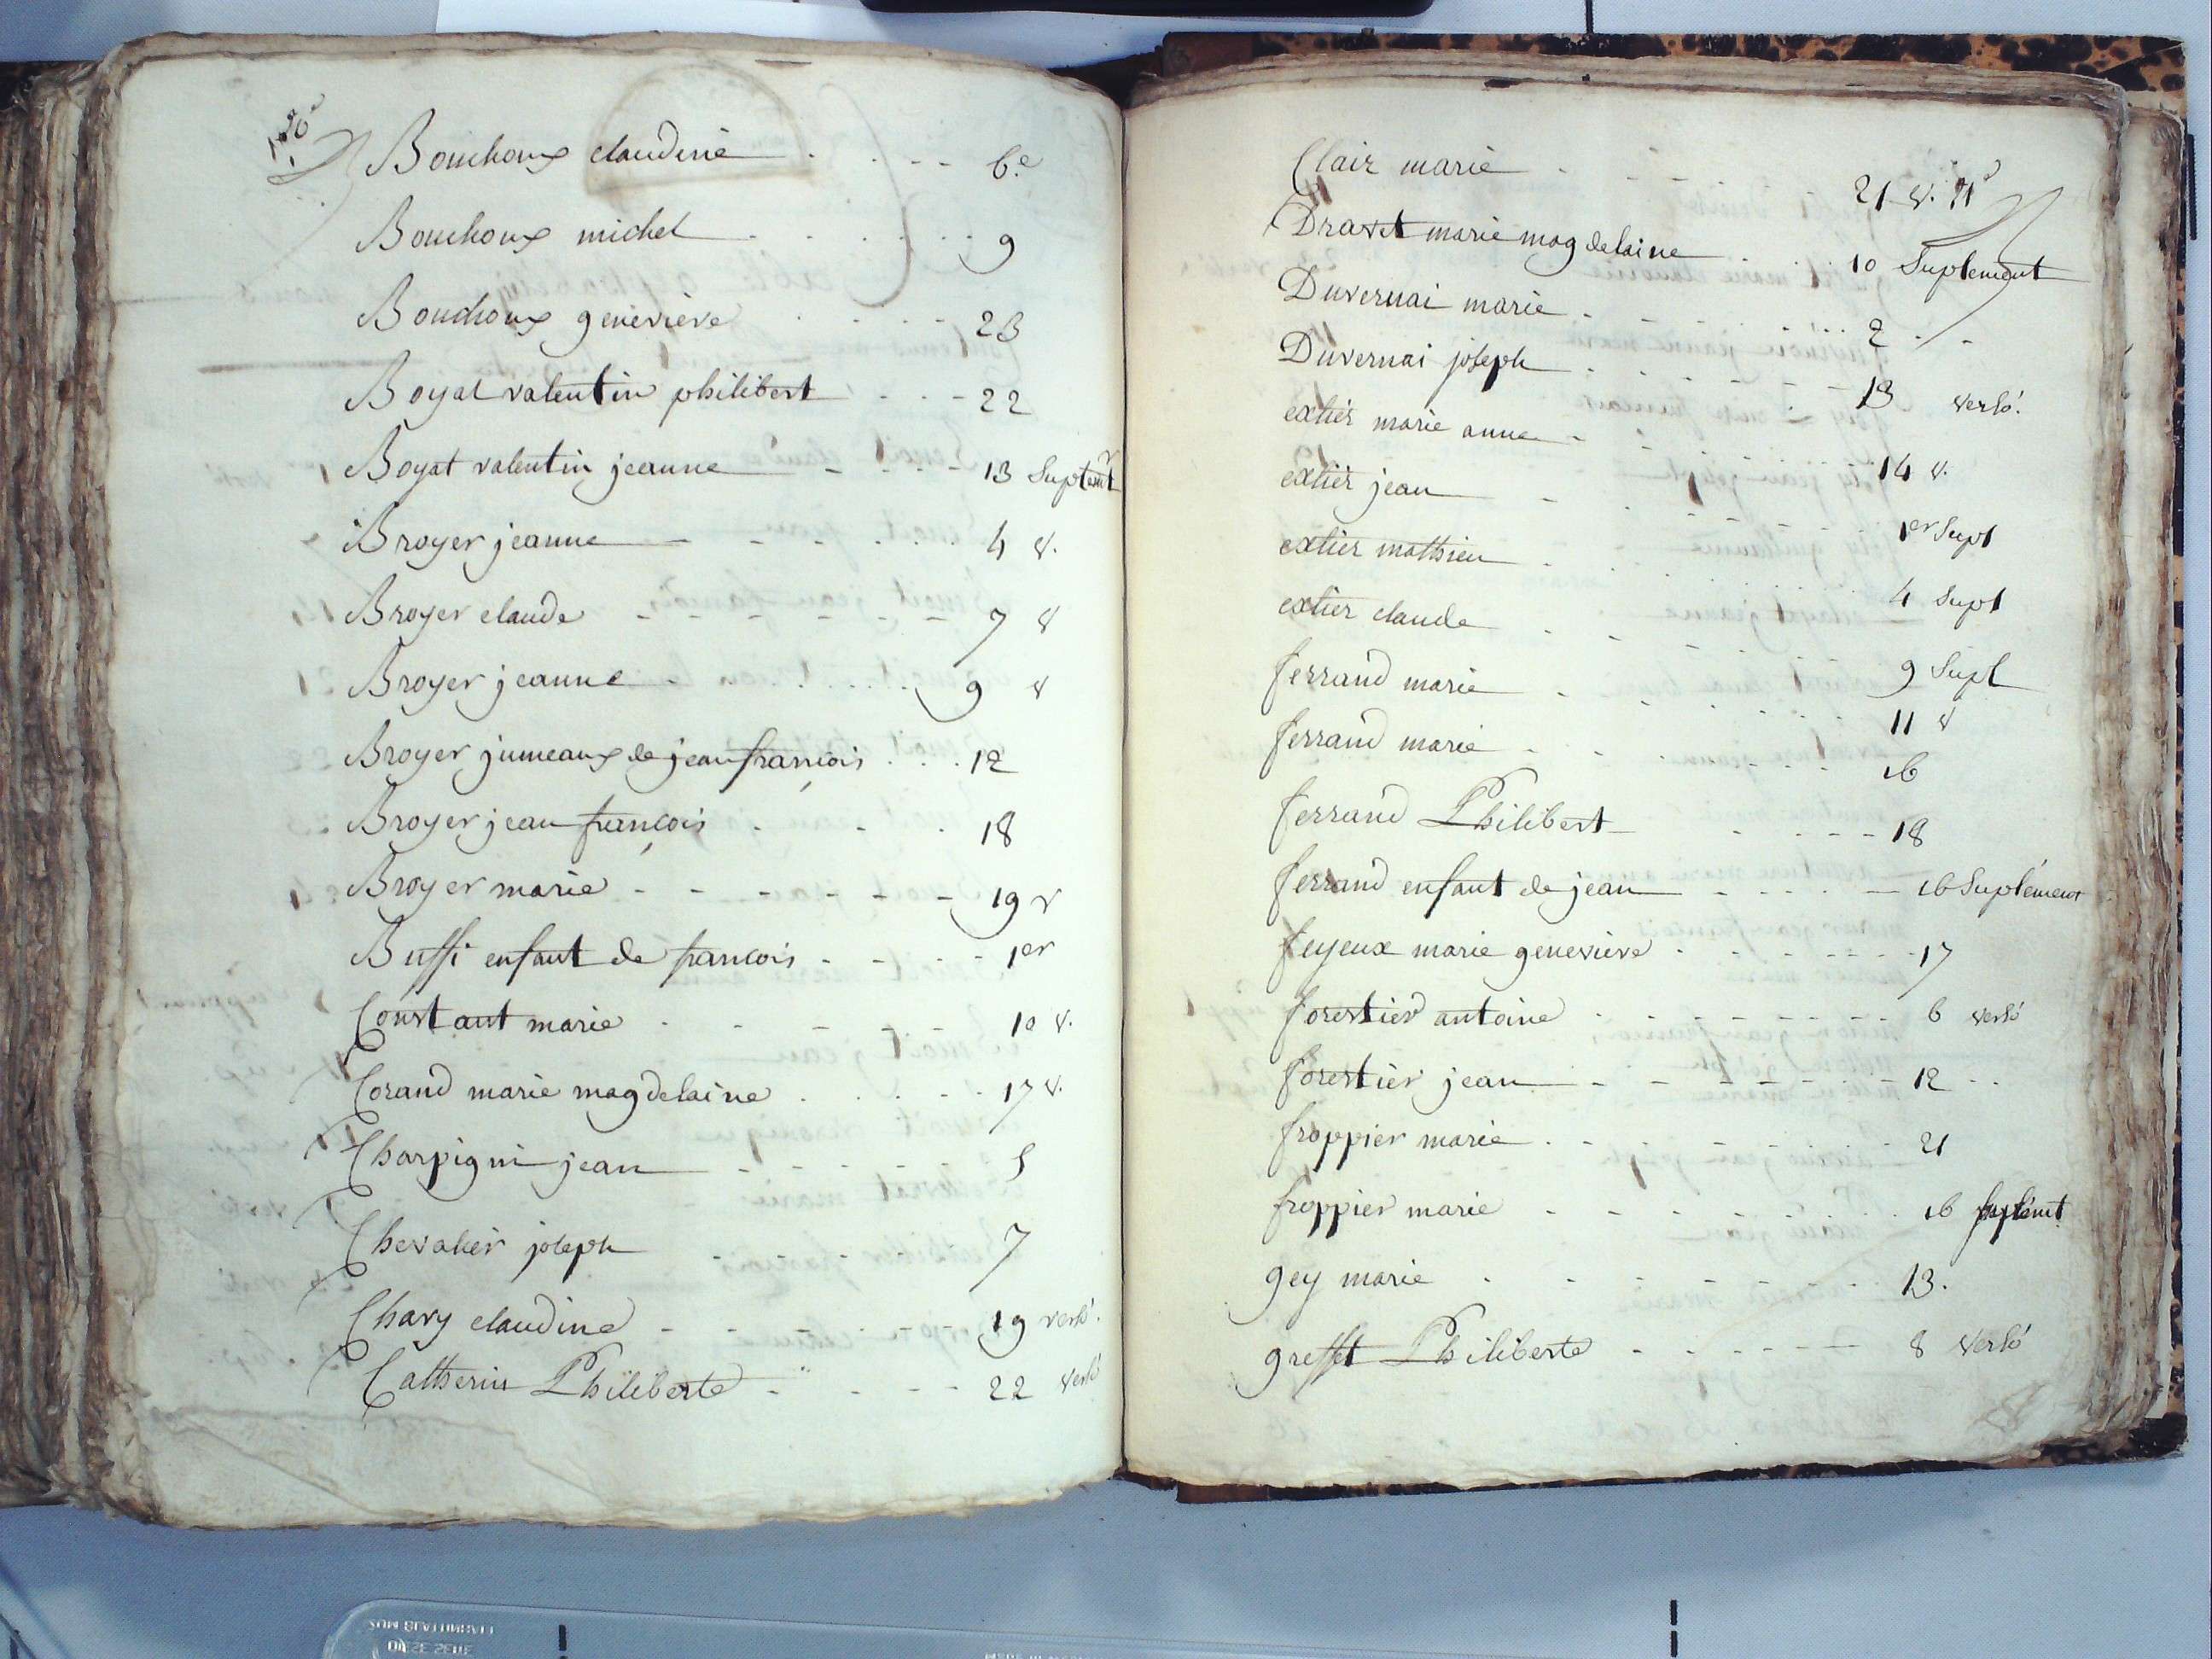 Bouchoux claudine . . . - - 6.e
Bouchoux michel . . . . . . 9
Bouchoux geneviève . . . - - 23
Boyat valentin philibert . . - 22
Boyat valentin jeanne - - - - 13 Suplemt
Broyer jeanne - - - - . . 4 v.
Broyer claude - - - - - - 7 v
Broyer jeanne . . . . . . 9 v
Broyer jumeaux de jean françois . . . 12
Broyer jean françois . - . 18
Broyer marie - - - - - - 19 v
Buffi enfant de françois - - - - 1er
Constant marie . - - - - 10 v.
Corand marie magdelaine . . . - . 17 v.
Charpigni jean - - - - - - 5
Chevalier joseph - - - 7
Chary claudine - - - - 19 verso.
Catherin Philiberte - - - - - 22 verso
Clair marie - - - - 21 v.
Dravet marie magdelaine . . . 10 Suplement
Duvernai marie . - - - - 2 . . -
Duvernai joseph . . . . - - 13 verso.
extier marie anne - - - 14 v.
extier jean - - - - - 1er Supl
extier mathieu . . . . . 4 Supl
extier claude . - - - - 9 Supl
ferrand marie . - - - . . . 11 v
ferrand marie - - . . - - - 16
ferrand Philibert - - - - - 18
ferrand enfant de jean - - - - - 16 Suplement
feyeux marie geneviève . - - - - - 17
forestier antoine - - - - - - - - 6 verso
forestier jean - - - - - - - - 12 . .
froppier marie . - - - - - - 21
froppier marie - - - - - - . . 16
gey marie . - - - - - - . . 13.
greffet Philiberte - - - - - - - 8 verso